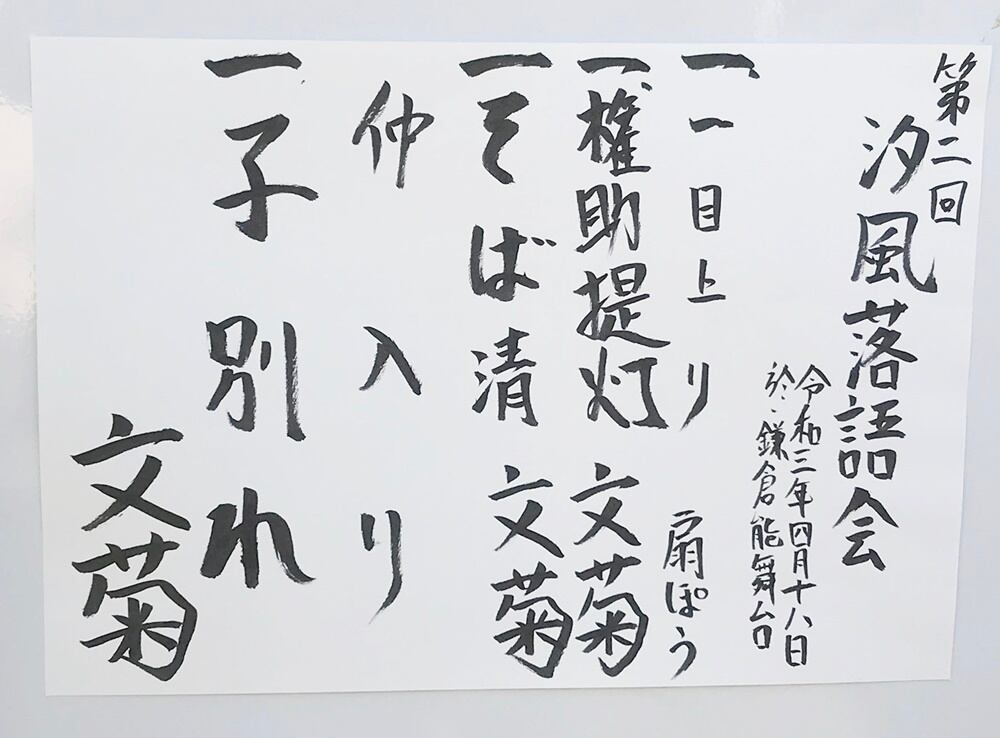 第二回
汐風落語会
令和三年四月十八日
於:鎌倉能舞台
一 一目上り 扇ぽう
一 権助提灯 文菊
一 そば清 文菊
仲入り
一 子別れ 文菊